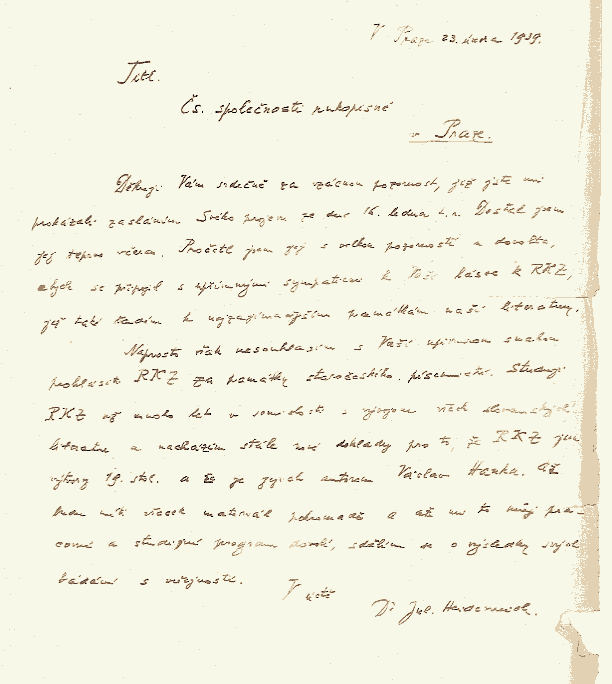 V Praze 23. února 1939.
Titl.
Čs. společnosti rukopisné
v Praze.
Děkuji Vám srdečně za vzácnou pozornost, jež jste mi
prokázali zasláním Svého projevu ze dne 16. ledna t. r. Dostal jsem
jej teprve včera. Pročetl jsem jej s velkou pozorností a dovolte,
abych se připojil s upřímnými sympatiemi k Vaší lásce k RKZ,
jež také řadím k nejzajímavějším památkám naší literatury.
Naprosto však nesouhlasím s Vaší upřímnou snahou
prohlásit RKZ za památky staročeského písemnictví. Studuji
RKZ už mnoho let v souvislosti s vývojem všech slovanských
literatur a nacházím stále nové doklady pro to, že RKZ jsou
výtvory 19. stol. a že je jejich autorem Václav Hanka. Až
budu míti všecek materiál pohromadě a až mi to můj pra-
covní a studijní program dovolí, sdělím se o výsledky svých
bádání s veřejností.
V úctě
Dr Jul. Heidenreich.